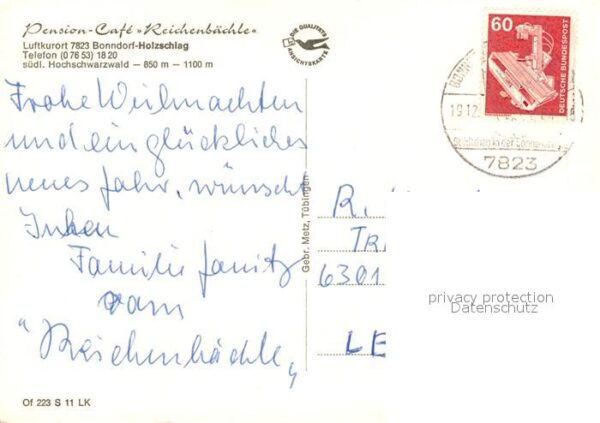 Pension-Café »Reichenbächle«
Luftkurort 7823 Bonndorf-Holzschlag
Telefon (0 76 53) 18 20
südl. Hochschwarzwald — 850 m — 1100 m
DIE QUALITÄTS
ANSICHTSKARTE
60
DEUTSCHE BUNDESPOST
19.12.
7823
Frohe Weihnachten
und ein glückliches
neues Jahr, wünscht
Ihnen
Familie Janitz
vom
"Reichenbächle"
Gebr. Metz, Tübingen
R.
TR
6301
LE
privacy protection
Datenschutz
Of 223 S 11 LK